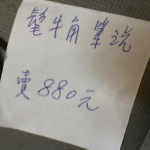 氂牛角單梳
賣880元